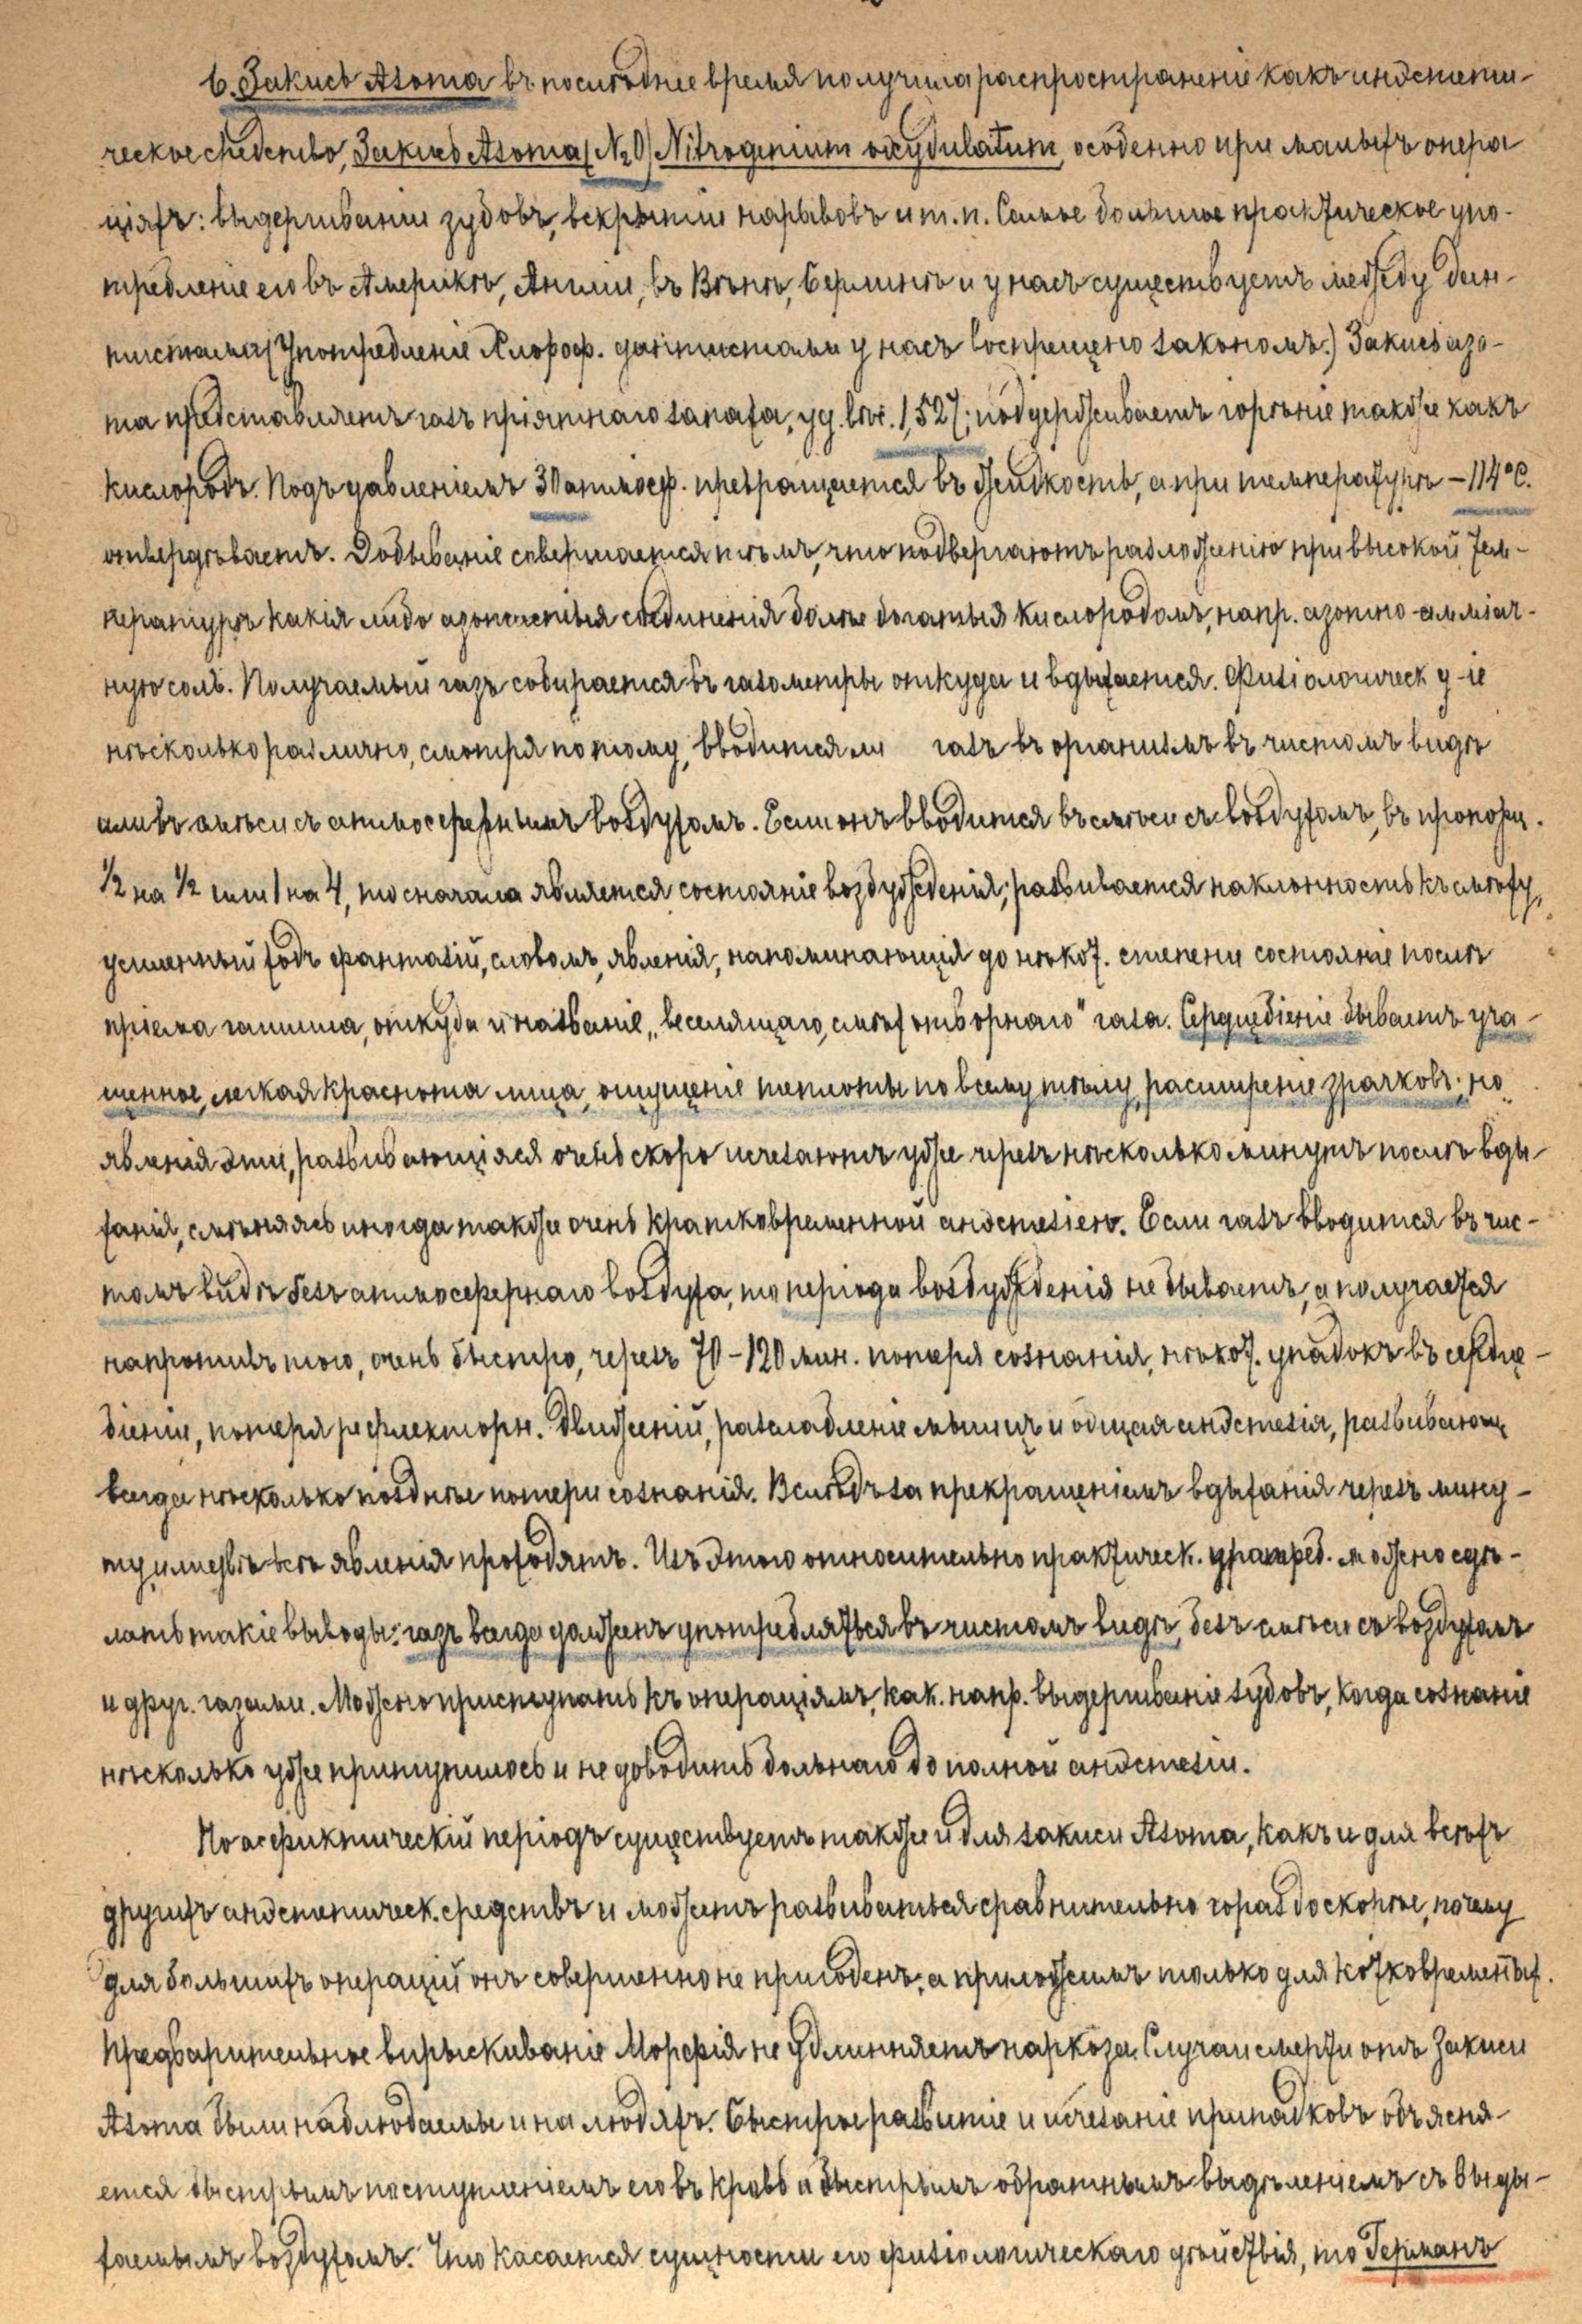 6. Закись Азота въ последнее время получила распространеніе какъ анэстети-
ческое средство, Закись Азота (N₂O) Nitrogenium oxydulatum, особенно при малыхъ опера
ціяхъ: выдергиваніи зубовъ, вскрытіи нарывовъ и т. п. Самое большое практическое упо-
требленіе его въ Америкѣ, Англіи, въ Вѣнѣ, Берлинѣ и у насъ существуетъ между дан-
тистами (Употребленіе Хлороф. дантистами у насъ воспрещено закономъ.) Закись азо-
та представляетъ газъ пріятнаго запаха, уд. вѣс. 1,527; поддерживаетъ горѣніе также какъ
кислородъ. Подъ давленіемъ 30 атмосф. превращается въ жидкость, а при температурѣ –114°C.
отвердѣваетъ. Добываніе совершается тѣмъ, что подвергаютъ разложенію при высокой тем-
пературѣ какія либо азотистыя соединенія болѣе богатыя кислородомъ, напр. азотно-амміач-
ную соль. Получаемый газъ собирается въ газометры откуда и вдыхается. Физіологическ. д-іе
нѣсколько различно, смотря потому, вводится ли газъ въ организмъ въ чистомъ видѣ
или въ смѣси съ атмосфернымъ воздухомъ. Если онъ вводится въ смѣси съ воздухомъ, въ пропорц.
½ на ½ или 1 на 4, то сначала является состояніе возбужденія; развивается наклонность къ смѣху,
усиленный ходъ фантазій, словомъ, явленія, напоминающія до нѣкот. степени состояніе послѣ
пріема гашиша, откуда и названіе „веселящаго, смѣхотворнаго" газа. Сердцебіеніе бываетъ уча-
щенное, легкая краснота лица, ощущеніе теплоты по всему тѣлу, расширеніе зрачковъ; но
явленія эти, развивающіяся очень скоро исчезаютъ уже черезъ нѣсколько минутъ послѣ вды-
ханія, смѣняясь иногда также очень кратковременной анэстезіею. Если газъ вводится въ чис-
томъ видѣ безъ атмосфернаго воздуха, то періода возбужденія не бываетъ, а получается
напротивъ того, очень быстро, черезъ 70–120 мин. потеря сознанія, нѣкот. упадокъ въ сердце-
біеніи, потеря рефлекторн. движеній, разслабленіе мышцъ и общая анэстезія, развивающ
всегда нѣсколько позднѣе потери сознанія. Вслѣдъ за прекращеніемъ вдыханія черезъ мину-
ту или двѣ всѣ явленія проходятъ. Изъ этого относительно практическ. употреб. можно сдѣ-
лать такіе выводы: газъ всегда долженъ употребляться въ чистомъ видѣ, безъ смѣси съ воздухомъ
и друг. газами. Можно приступать къ операціямъ, как. напр. выдергиваніе зубовъ, когда сознаніе
нѣсколько уже притупилось и не доводить больнаго до полной анэстезіи.
Но асфиктическій періодъ существуетъ также и для закиси Азота, какъ и для всѣхъ
другихъ анэстетическ. средствъ и можетъ развиваться сравнительно гораздо скорѣе, почему
для большихъ операцій онъ совершенно не пригоденъ; а приложимъ только для котковременных.
Предварительное впрыскиваніе Морфія не удлинняетъ наркоза. Случаи смерти отъ Закиси
Азота были наблюдаемы и на людяхъ. Быстрое развитіе и исчезаніе припадковъ объясня-
ется быстрымъ поступленіемъ его въ кровь и быстрымъ обратнымъ выдѣленіемъ съ выды-
хаемымъ воздухомъ. Что касается сущности его физіологическаго дѣйствія, то Германъ